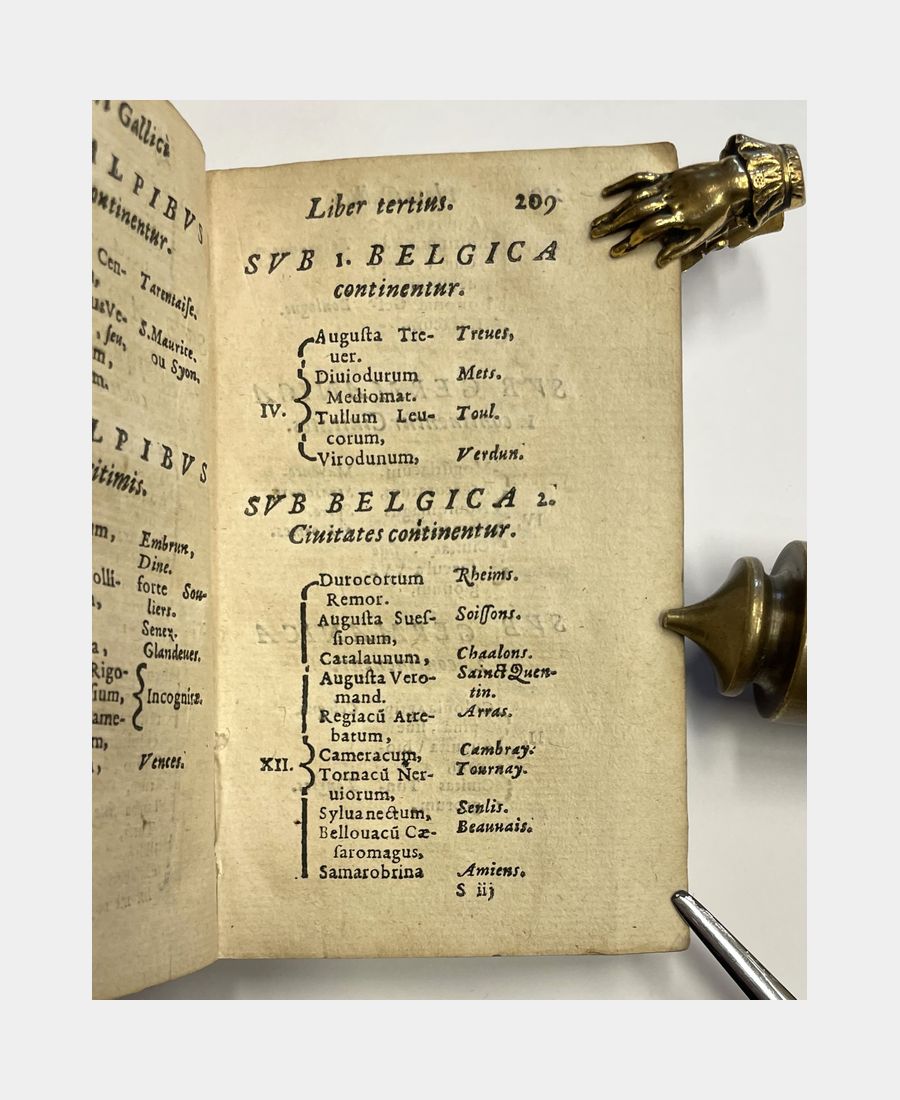 Gallicè
LPIBVS
continentur.
Cen- Tarentaiſe.
usVe- S.Maurice.
, ſeu, ou Syon,
m,
m.
LPIBVS
itimis.
m, Embrun,
Dine.
olli- forte Sou-
, liers.
Senez.
a, Glandeues.
Rigo-
ium, Incognitæ.
ame-
m,
, Vences.
Liber tertius. 209
SVB 1. BELGICA
continentur.
Auguſta Tre- Treues,
uer.
Diuiodurum Mets.
Mediomat.
IV.
Tullum Leu- Toul.
corum,
Virodunum, Verdun.
SVB BELGICA 2.
Ciuitates continentur.
Durocortum Rheims.
Remor.
Auguſta Sueſ- Soiſſons.
ſionum,
Catalaunum, Chaalons.
Auguſta Vero- Sainct Quen-
mand. tin.
Regiacū Atre- Arras.
batum,
Cameracum, Cambray.
XII.
Tornacū Ner- Tournay.
uiorum,
Syluanectum, Senlis.
Bellouacū Cæ- Beauuais.
ſaromagus,
Samarobrina Amiens.
S iij